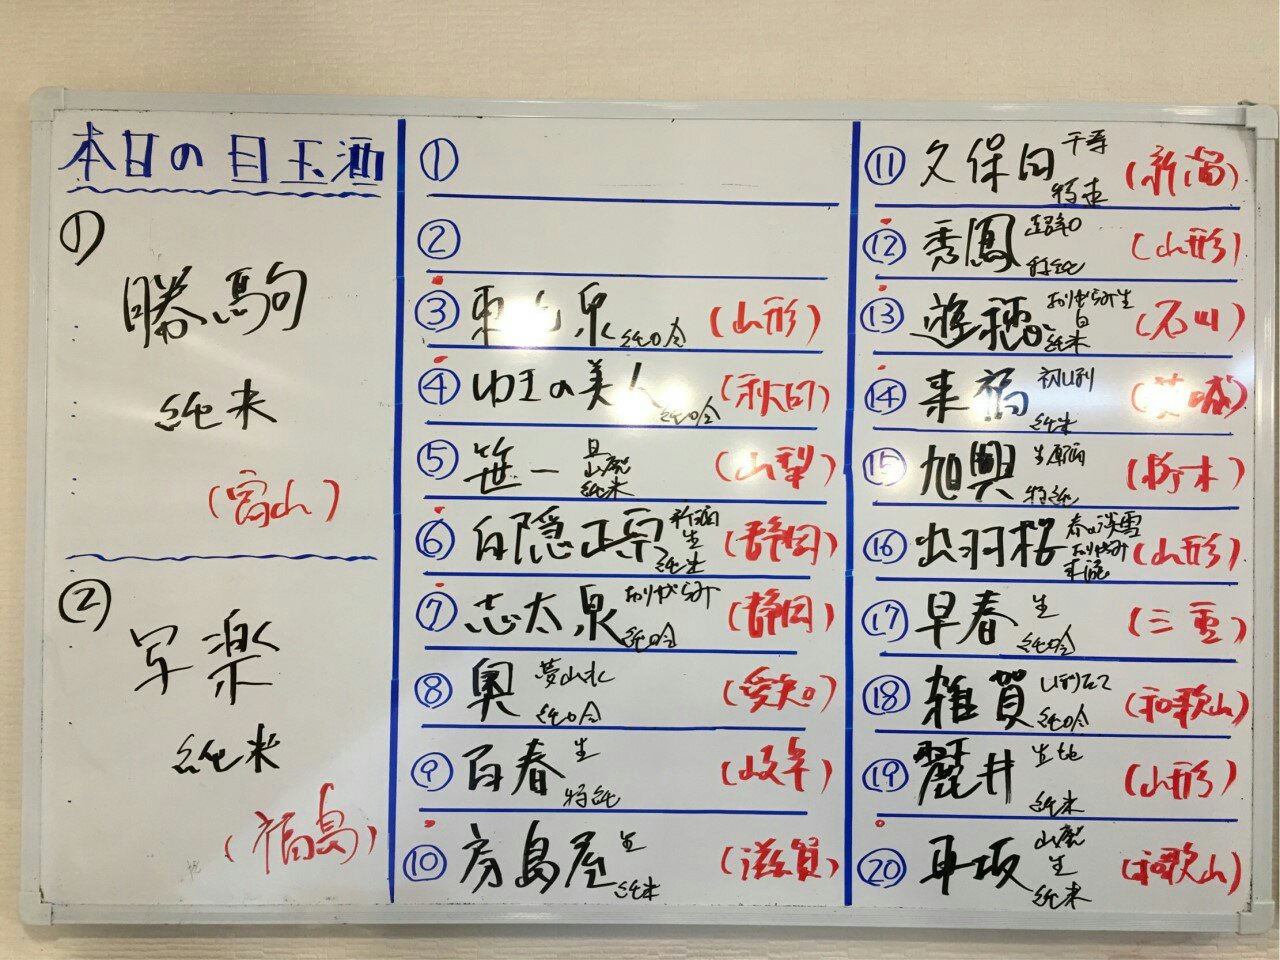 本日の目玉酒
①
勝駒
純米
(富山)
②
写楽
純米
(福島)
①
②
③ 東光泉 純吟 (山形)
④ ゆきの美人 純吟 (秋田)
⑤ 笹一 旦 山廃 純米 (山梨)
⑥ 白隠正宗 新酒 生 純米 (静岡)
⑦ 志太泉 おりがらみ 純吟 (静岡)
⑧ 奥 夢山水 純吟 (愛知)
⑨ 百春 生 特純 (岐阜)
⑩ 房島屋 生 純米 (滋賀)
⑪ 久保田 千寿 特本 (新潟)
⑫ 秀鳳 超辛口 特純 (山形)
⑬ 遊穂 おりがらみ生 白 純米 (石川)
⑭ 来福 初しぼり 純米 (茨城)
⑮ 旭興 生原酒 特純 (栃木)
⑯ 出羽桜 春の淡雪 おりがらみ 本醸 (山形)
⑰ 早春 生 純吟 (三重)
⑱ 雑賀 しぼりたて 純吟 (和歌山)
⑲ 麓井 生もと 純米 (山形)
⑳ 車坂 山廃 生 純米 (和歌山)